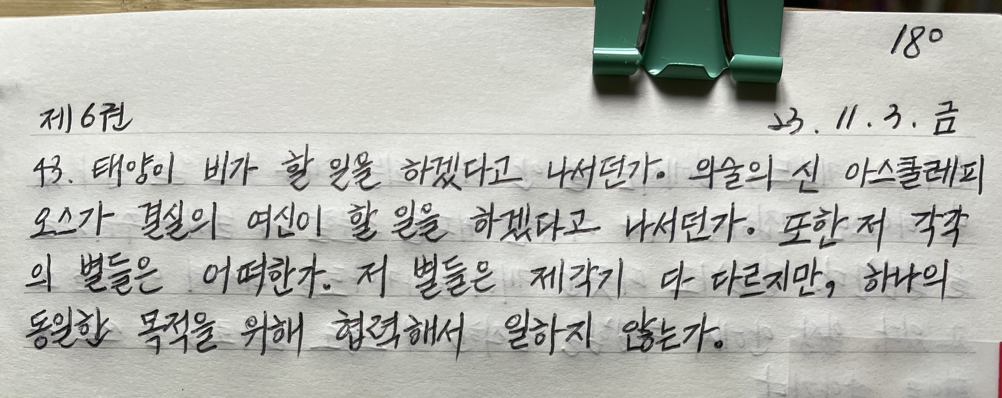 18°
제6권 23.11.3.금
43. 태양이 비가 할 일을 하겠다고 나서던가. 의술의 신 아스클레피
오스가 결실의 여신이 할 일을 하겠다고 나서던가. 또한 저 각각
의 별들은 어떠한가. 저 별들은 제각기 다 다르지만, 하나의
동일한 목적을 위해 협력해서 일하지 않는가.